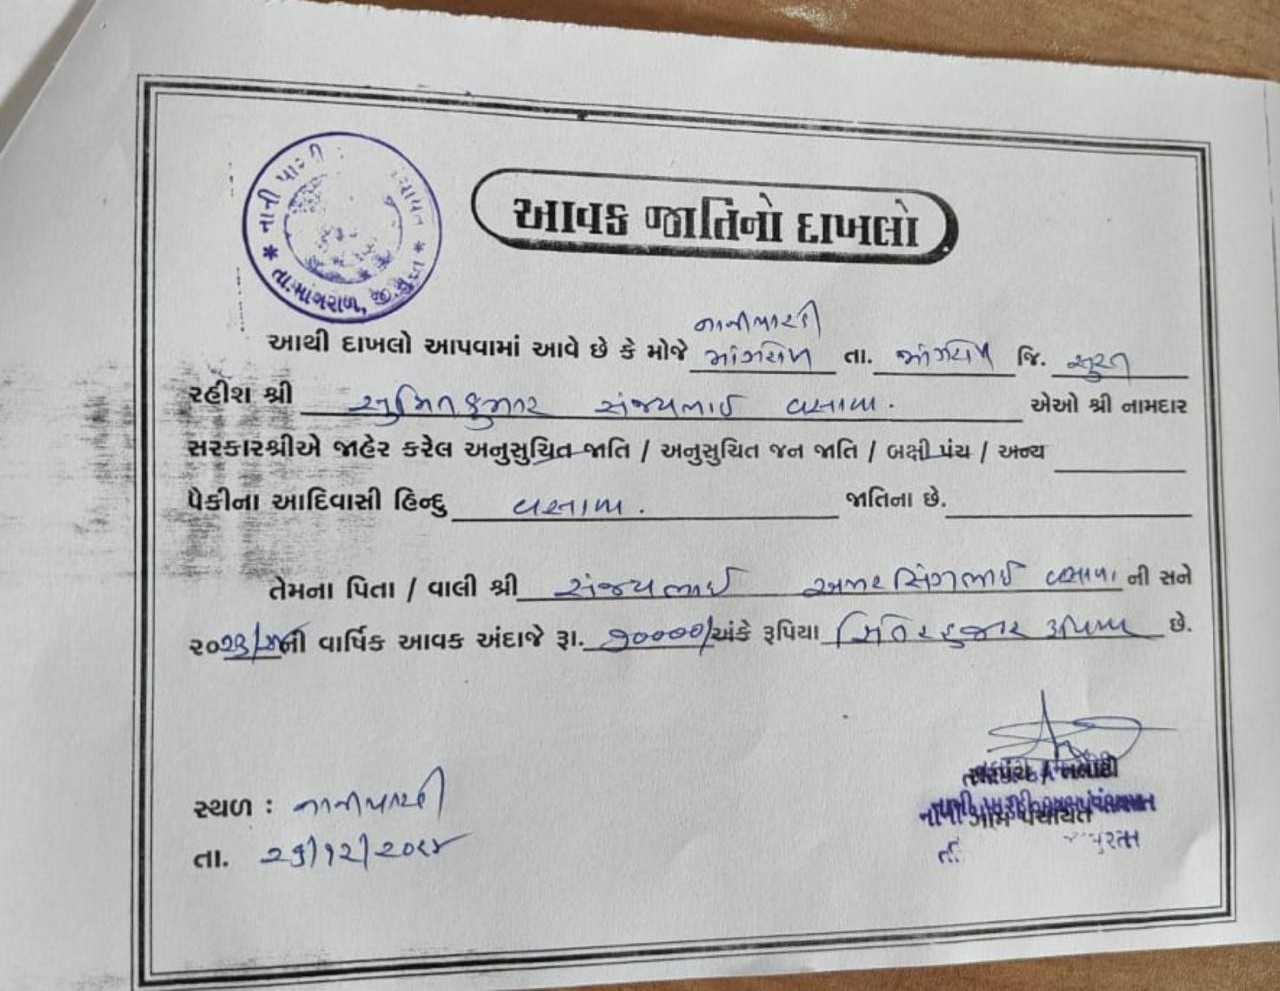 નાની પારડી
તા.માંગરોળ, જી.સુરત
આવક જાતિનો દાખલો
નાનીપારડી
આથી દાખલો આપવામાં આવે છે કે મોજે માંગરોળ તા. માંગરોળ જિ. સુરત
રહીશ શ્રી સુમિતકુમાર સંજયભાઈ વસાવા. એઓ શ્રી નામદાર
સરકારશ્રીએ જાહેર કરેલ અનુસુચિત જાતિ / અનુસુચિત જન જાતિ / બક્ષી પંચ / અન્ય
પૈકીના આદિવાસી હિન્દુ વસાવા. જાતિના છે.
તેમના પિતા / વાલી શ્રી સંજયભાઈ અમરસિંગભાઈ વસાવા ની સને
૨૦૨૩/૨૪ની વાર્ષિક આવક અંદાજે રૂા. ૭૦૦૦૦/અંકે રૂપિયા સિતેરહજાર રૂપિયા છે.
સરપંચ / તલાટી
ગ્રામ પંચાયત
સ્થળ : નાનીપારડી
તા. ૨૬/૧૨/૨૦૨૪